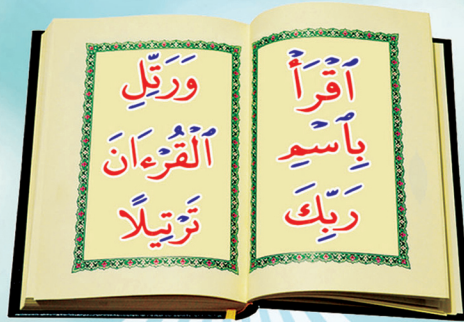 ٱقۡرَأۡ
بِٱسۡمِ
رَبِّكَ
وَرَتِّلِ
ٱلۡقُرۡءَانَ
تَرۡتِيلًا